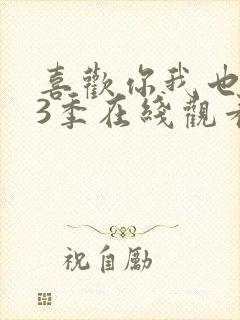 喜歡你我也
3季在綫觀看
祝自勵